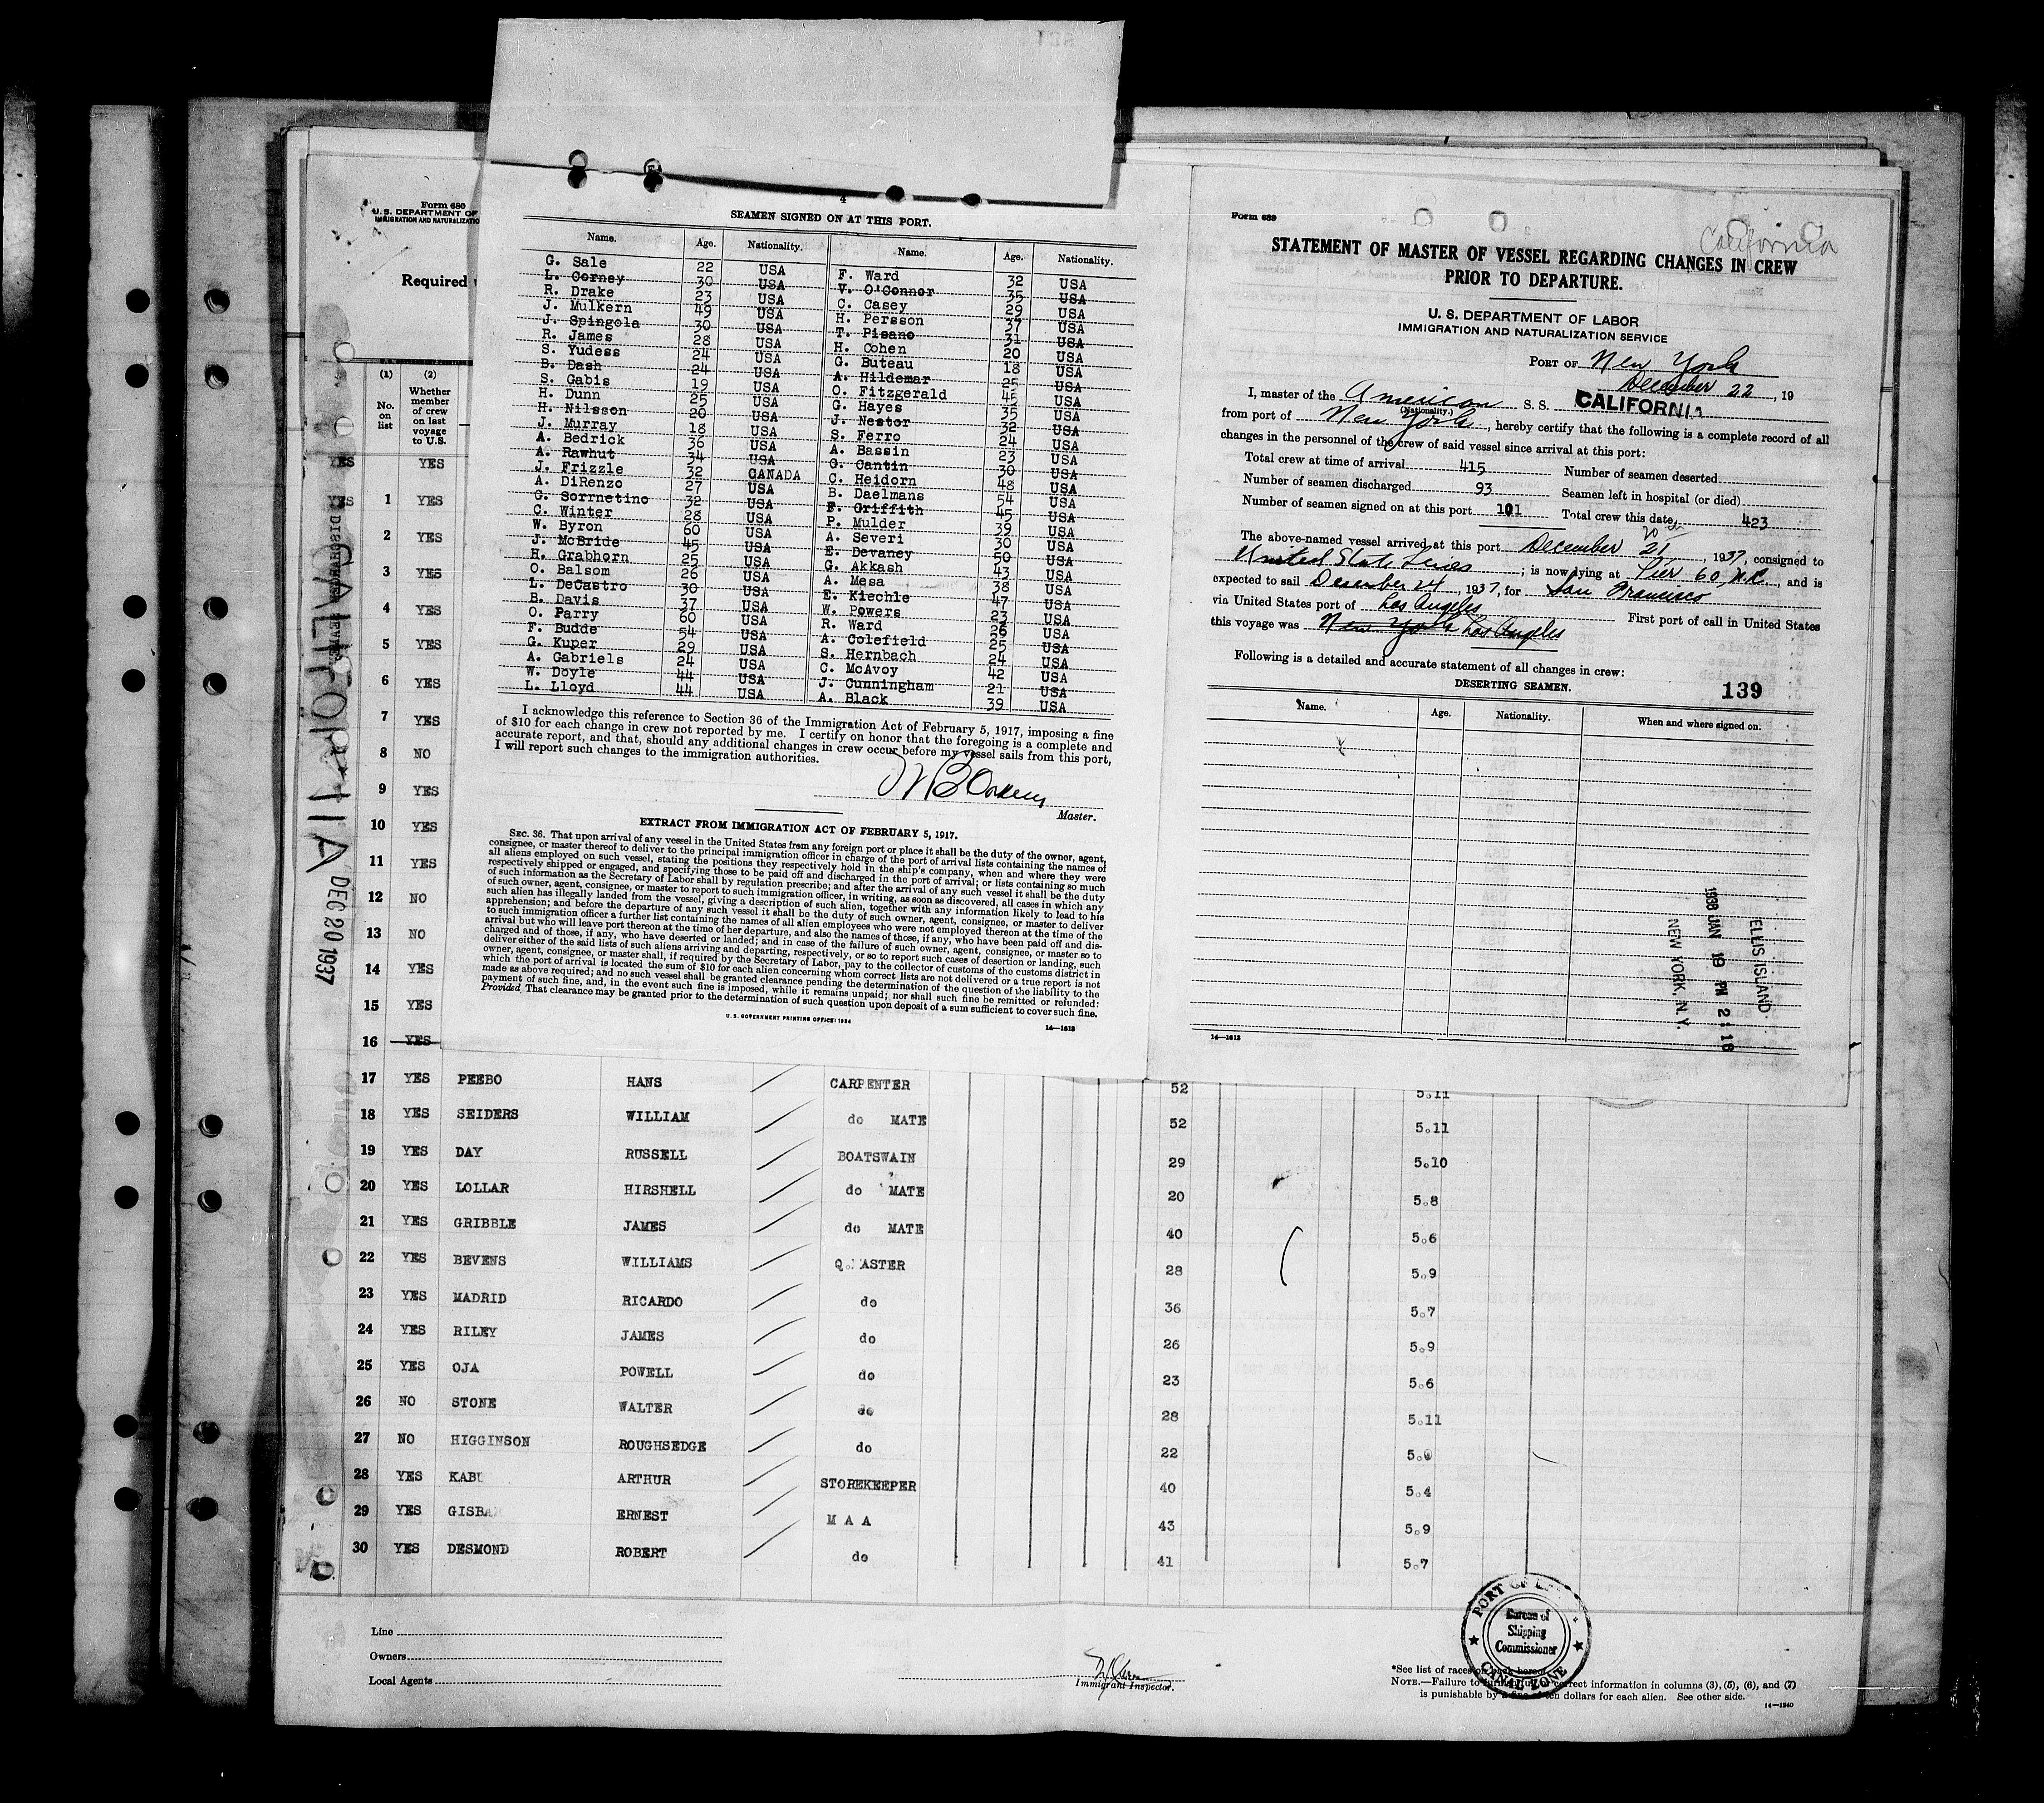 Form 680
U. S. DEPARTMENT OF
IMMIGRATION AND NATURALIZATIO
Required
(1)
No.
on
list
(2)
Whether
member
of crew
on last
voyage
to U.S.
YES YES
YES 1 YES
2 YES
3 YES
4 YES
5 YES
6 YES
7 YES
8 NO
9 YES
10 YES
11 YES
12 NO
13 NO
14 YES
15 YES
16 YES
CALIFORNIA
DEC 20 1937
4
SEAMEN SIGNED ON AT THIS PORT.
Name. Age. Nationality. Name. Age. Nationality.
G. Sale 22 USA F. Ward 32 USA
L. Corney 30 USA V. O'Connor 35 USA
R. Drake 23 USA C. Casey 29 USA
J. Mulkern 49 USA H. Persson 37 USA
J. Spingola 30 USA T. Pisano 31 USA
R. James 28 USA H. Cohen 20 USA
S. Yudess 24 USA G. Buteau 18 USA
B. Dash 24 USA A. Hildemar 25 USA
S. Gabis 19 USA O. Fitzgerald 45 USA
H. Dunn 25 USA G. Hayes 35 USA
H. Nilsson 20 USA J. Nestor 32 USA
J. Murray 18 USA S. Ferro 24 USA
A. Bedrick 36 USA A. Bassin 23 USA
A. Rawhut 34 USA G. Cantin 30 USA
J. Frizzle 32 CANADA C. Heidorn 48 USA
A. DiRenzo 27 USA B. Daelmans 54 USA
G. Sorrnetino 32 USA F. Griffith 45 USA
C. Winter 28 USA P. Mulder 39 USA
W. Byron 60 USA A. Severi 30 USA
J. McBride 45 USA E. Devaney 50 USA
H. Grabhorn 25 USA G. Akkash 43 USA
O. Balsom 26 USA A. Mesa 38 USA
L. DeCastro 30 USA E. Kiechle 47 USA
B. Davis 37 USA W. Powers 23 USA
O. Parry 60 USA R. Ward 26 USA
F. Budde 54 USA A. Colefield 25 USA
G. Kuper 29 USA S. Hernbach 24 USA
A. Gabriels 24 USA C. McAvoy 42 USA
W. Doyle 44 USA J. Cunningham 21 USA
L. Lloyd 44 USA A. Black 39 USA
I acknowledge this reference to Section 36 of the Immigration Act of February 5, 1917, imposing a fine
of $10 for each change in crew not reported by me. I certify on honor that the foregoing is a complete and
accurate report, and that, should any additional changes in crew occur before my vessel sails from this port,
I will report such changes to the immigration authorities.
Master.
EXTRACT FROM IMMIGRATION ACT OF FEBRUARY 5, 1917.
SEC. 36. That upon arrival of any vessel in the United States from any foreign port or place it shall be the duty of the owner, agent,
consignee, or master thereof to deliver to the principal immigration officer in charge of the port of arrival lists containing the names of
all aliens employed on such vessel, stating the positions they respectively hold in the ship's company, when and where they were
respectively shipped or engaged, and specifying those to be paid off and discharged in the port of arrival; or lists containing so much
of such information as the Secretary of Labor shall by regulation prescribe; and after the arrival of any such vessel it shall be the duty
of such owner, agent, consignee, or master to report to such immigration officer, in writing, as soon as discovered, all cases in which any
such alien has illegally landed from the vessel, giving a description of such alien, together with any information likely to lead to his
apprehension; and before the departure of any such vessel it shall be the duty of such owner, agent, consignee, or master to deliver
to such immigration officer a further list containing the names of all alien employees who were not employed thereon at the time of the
arrival but who will leave port thereon at the time of her departure, and also the names of those, if any, who have been paid off and dis-
charged and of those, if any, who have deserted or landed; and in case of the failure of such owner, agent, consignee, or master so to
deliver either of the said lists of such aliens arriving and departing, respectively, or so to report such cases of desertion or landing, such
owner, agent, consignee, or master shall, if required by the Secretary of Labor, pay to the collector of customs of the customs district in
which the port of arrival is located the sum of $10 for each alien concerning whom correct lists are not delivered or a true report is not
made as above required; and no such vessel shall be granted clearance pending the determination of the question of the liability to the
payment of such fine, and, in the event such fine is imposed, while it remains unpaid; nor shall such fine be remitted or refunded:
Provided, That clearance may be granted prior to the determination of such question upon deposit of a sum sufficient to cover such fine.
U. S. GOVERNMENT PRINTING OFFICE: 1934
14—1613
Form 689
California
STATEMENT OF MASTER OF VESSEL REGARDING CHANGES IN CREW
PRIOR TO DEPARTURE.
U. S. DEPARTMENT OF LABOR
IMMIGRATION AND NATURALIZATION SERVICE
PORT OF New York
December 22, 19
I, master of the American S. S. CALIFORNIA
(Nationality.)
from port of New York, hereby certify that the following is a complete record of all
changes in the personnel of the crew of said vessel since arrival at this port:
Total crew at time of arrival 415 Number of seamen deserted
Number of seamen discharged 93 Seamen left in hospital (or died)
Number of seamen signed on at this port 101 Total crew this date 423
20
The above-named vessel arrived at this port December 21, 1937, consigned to
United State Lines; is now lying at Pier 60, N.R., and is
expected to sail December 24, 1937, for San Francisco
via United States port of Los Angeles First port of call in United States
this voyage was New York Los Angeles
Following is a detailed and accurate statement of all changes in crew:
DESERTING SEAMEN. 139
Name. Age. Nationality. When and where signed on.
ELLIS ISLAND
1938 JAN 19 PM 2:16
NEW YORK, N. Y.
14—1613
17 YES PEEBO HANS CARPENTER 52 5.11
18 YES SEIDERS WILLIAM do MATE 52 5.11
19 YES DAY RUSSELL BOATSWAIN 29 5.10
20 YES LOLLAR HIRSHELL do MATE 20 5.8
21 YES GRIBBLE JAMES do MATE 40 5.6
22 YES BEVENS WILLIAMS Q. ASTER 28 5.9
23 YES MADRID RICARDO do 36 5.7
24 YES RILEY JAMES do 26 5.9
25 YES OJA POWELL do 23 5.6
26 NO STONE WALTER do 28 5.11
27 NO HIGGINSON ROUGHSEDGE do 22
28 YES ARTHUR STOREKEEPER 40 5.4
29 YES ERNEST M A A 43 5.9
30 YES DESMOND ROBERT do 41 5.7
Line
Owners
Local Agents
Immigrant Inspector.
PORT OF
Bureau of
Shipping
Commissioner
CANAL ZONE
*See list of races on back hereof.
NOTE.—Failure to furnish full or correct information in columns (3), (5), (6), and (7)
is punishable by a fine of ten dollars for each alien. See other side.
14—1240